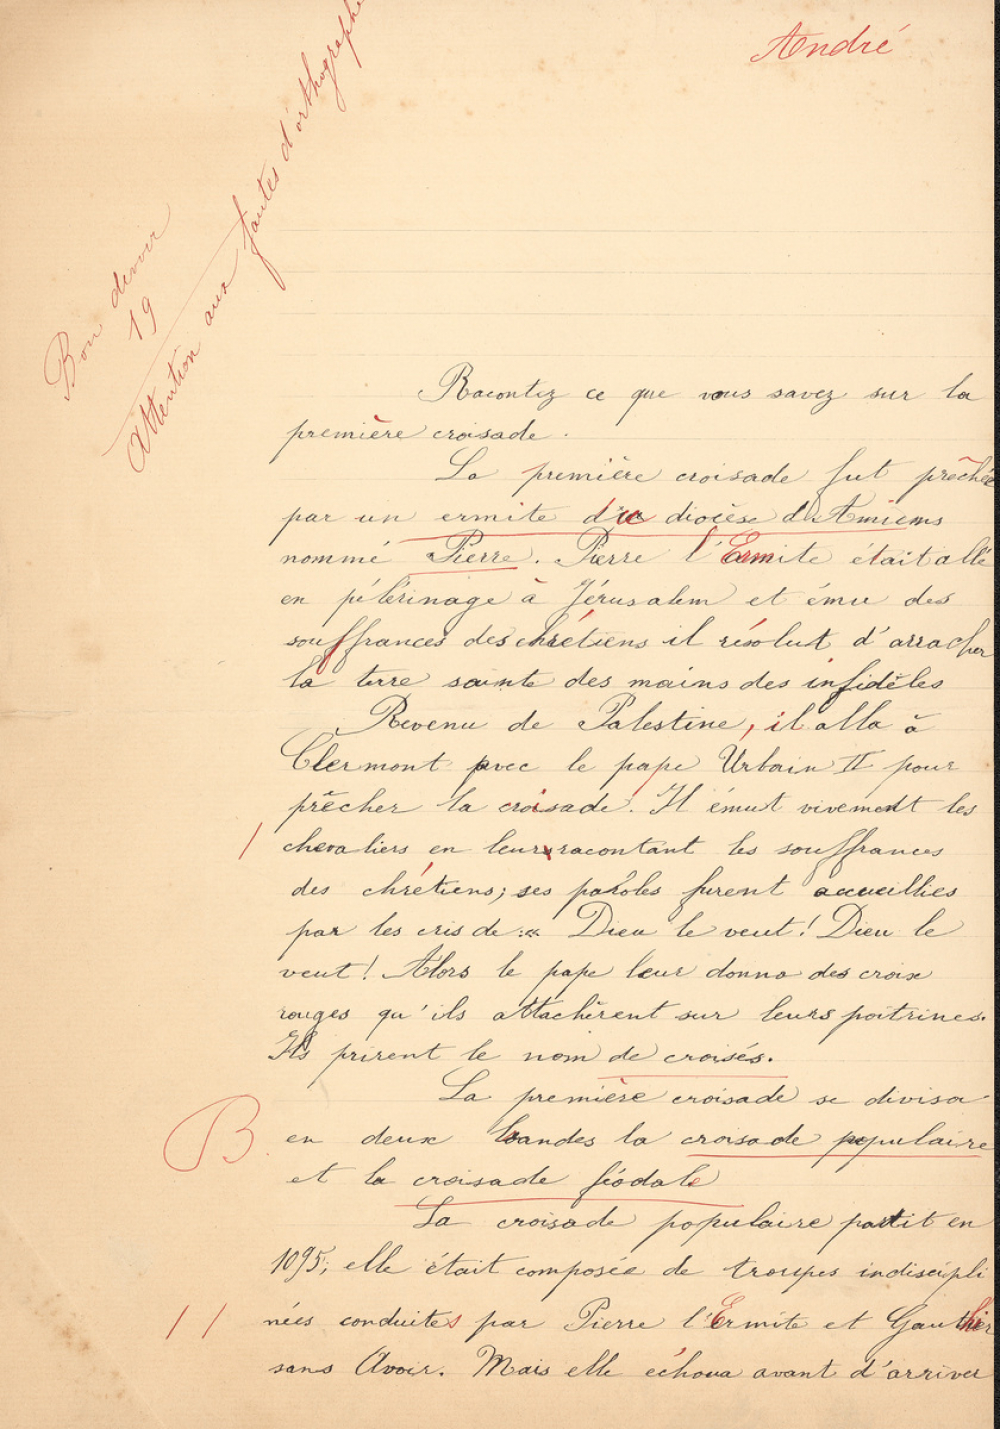 André
Bon devoir
19
Attention aux fautes d'orthographe
Racontez ce que vous savez sur la
première croisade.
La première croisade fut prêchée
par un ermite du diocèse d'Amiens
nommé Pierre. Pierre l'Ermite était allé
en pélérinage à Jérusalem et ému des
souffrances des chrétiens il résolut d'arracher
la terre sainte des mains des infidèles
Revenu de Palestine, il alla à
Clermont avec le pape Urbain II pour
prêcher la croisade. Il émut vivement les
chevaliers en leur racontant les souffrances
des chrétiens; ses paroles furent accueillies
par les cris de : « Dieu le veut! Dieu le
veut! Alors le pape leur donna des croix
rouges qu'ils attachèrent sur leurs poitrines.
Ils prirent le nom de croisés.
La première croisade se divisa
B en deux bandes la croisade populaire
et la croisade féodale
La croisade populaire partit en
1095; elle était composée de troupes indiscipli
nées conduites par Pierre l'Ermite et Gauthier
sans Avoir. Mais elle échoua avant d'arriver